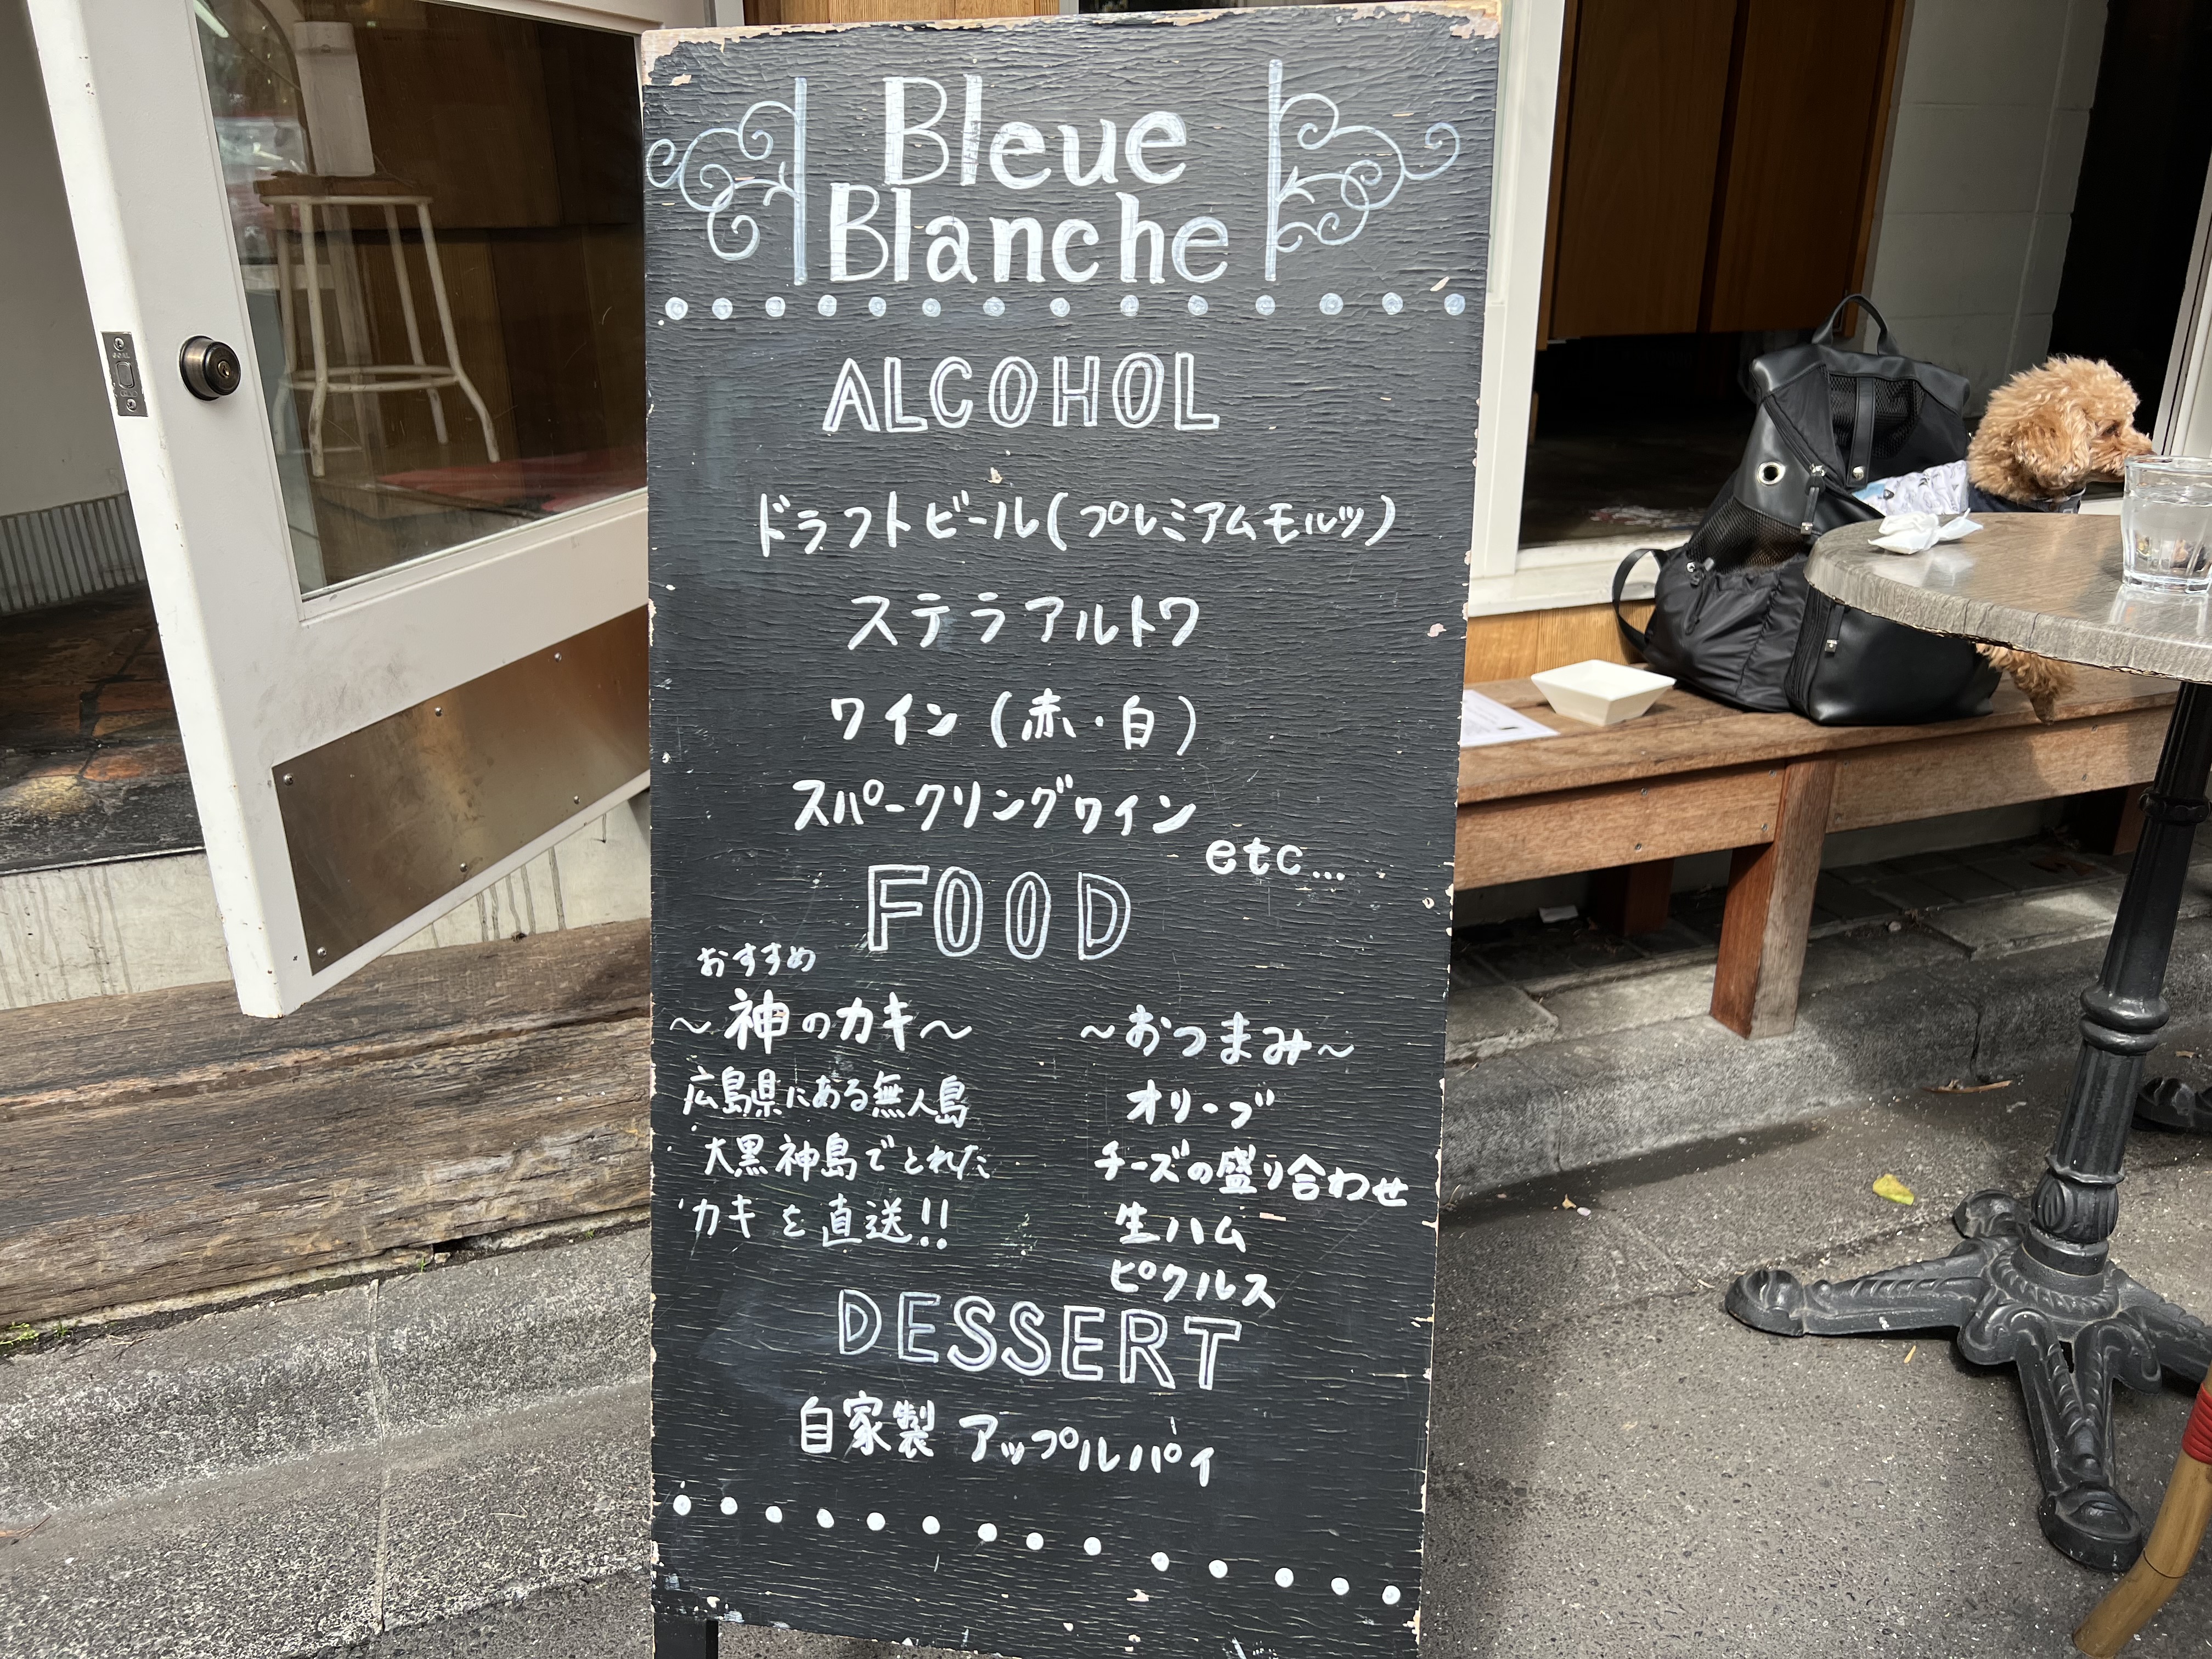 Bleue
Blanche
ALCOHOL
ドラフトビール(プレミアムモルツ)
ステラアルトワ
ワイン (赤・白)
スパークリングワイン
etc...
FOOD
おすすめ
～神のカキ～
広島県にある無人島
大黒神島でとれた
カキを直送!!
～おつまみ～
オリーブ
チーズの盛り合わせ
生ハム
ピクルス
DESSERT
自家製 アップルパイ